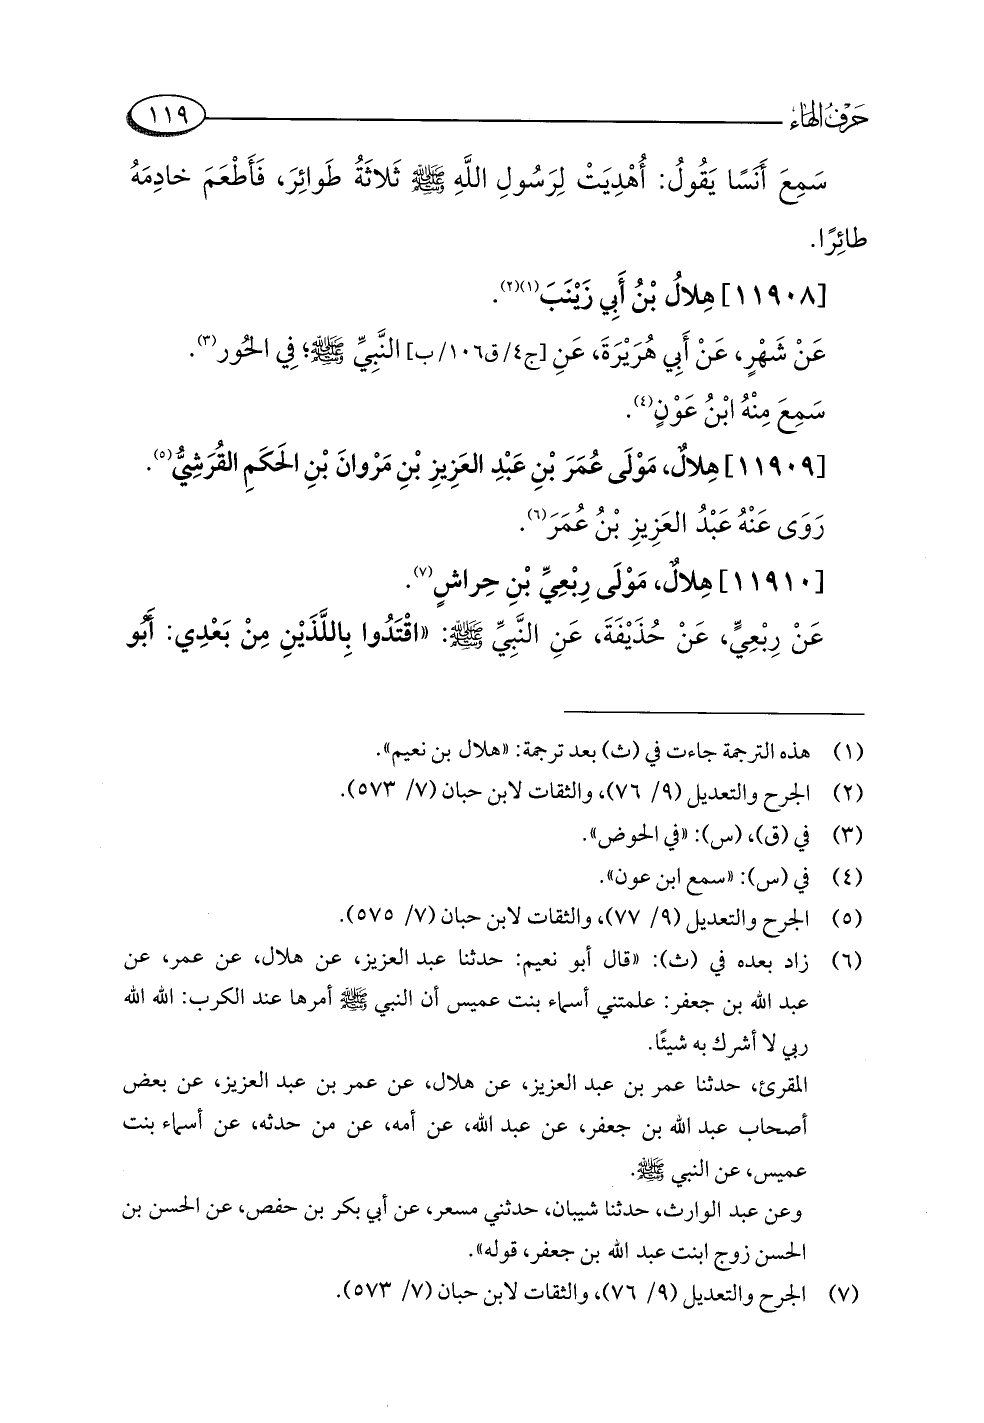 حَرْفُ الهَاء
١١٩
سَمِعَ أَنَسًا يَقُولُ: أُهْدِيَتْ لِرَسُولِ اللَّهِ ﷺ ثَلاثَةُ طَوائِرَ، فَأَطْعَمَ خادِمَهُ
طائِرًا.
[١١٩٠٨] هِلالُ بْنُ أَبِي زَيْنَبَ(١)(٢).
عَنْ شَهْرٍ، عَنْ أَبِي هُرَيْرَةَ، عَنِ [ج٤/ ق١٠٦/ ب] النَّبِيِّ ﷺ؛ فِي الحُور(٣).
سَمِعَ مِنْهُ ابْنُ عَوْنٍ(٤).
[١١٩٠٩] هِلالٌ، مَوْلَى عُمَرَ بْنِ عَبْدِ العَزِيزِ بْنِ مَرْوانَ بْنِ الحَكَمِ القُرَشِيُّ(٥).
رَوَى عَنْهُ عَبْدُ العَزِيزِ بْنُ عُمَرَ(٦).
[١١٩١٠] هِلالٌ، مَوْلَى رِبْعِيِّ بْنِ حِراشٍ(٧).
عَنْ رِبْعِيٍّ، عَنْ حُذَيْفَةَ، عَنِ النَّبِيِّ ﷺ: «اقْتَدُوا بِاللَّذَيْنِ مِنْ بَعْدِي: أَبُو
(١) هذه الترجمة جاءت في (ث) بعد ترجمة: «هلال بن نعيم».
(٢) الجرح والتعديل (٩/ ٧٦)، والثقات لابن حبان (٧/ ٥٧٣).
(٣) في (ق)، (س): «في الحوض».
(٤) في (س): «سمع ابن عون».
(٥) الجرح والتعديل (٩/ ٧٧)، والثقات لابن حبان (٧/ ٥٧٥).
(٦) زاد بعده في (ث): «قال أبو نعيم: حدثنا عبد العزيز، عن هلال، عن عمر، عن
عبد الله بن جعفر: علمتني أسماء بنت عميس أن النبي ﷺ أمرها عند الكرب: الله الله
ربي لا أشرك به شيئًا.
المقرئ، حدثنا عمر بن عبد العزيز، عن هلال، عن عمر بن عبد العزيز، عن بعض
أصحاب عبد الله بن جعفر، عن عبد الله، عن أمه، عن من حدثه، عن أسماء بنت
عميس، عن النبي ﷺ.
وعن عبد الوارث، حدثنا شيبان، حدثني مسعر، عن أبي بكر بن حفص، عن الحسن بن
الحسن زوج ابنت عبد الله بن جعفر، قوله».
(٧) الجرح والتعديل (٩/ ٧٦)، والثقات لابن حبان (٧/ ٥٧٣).